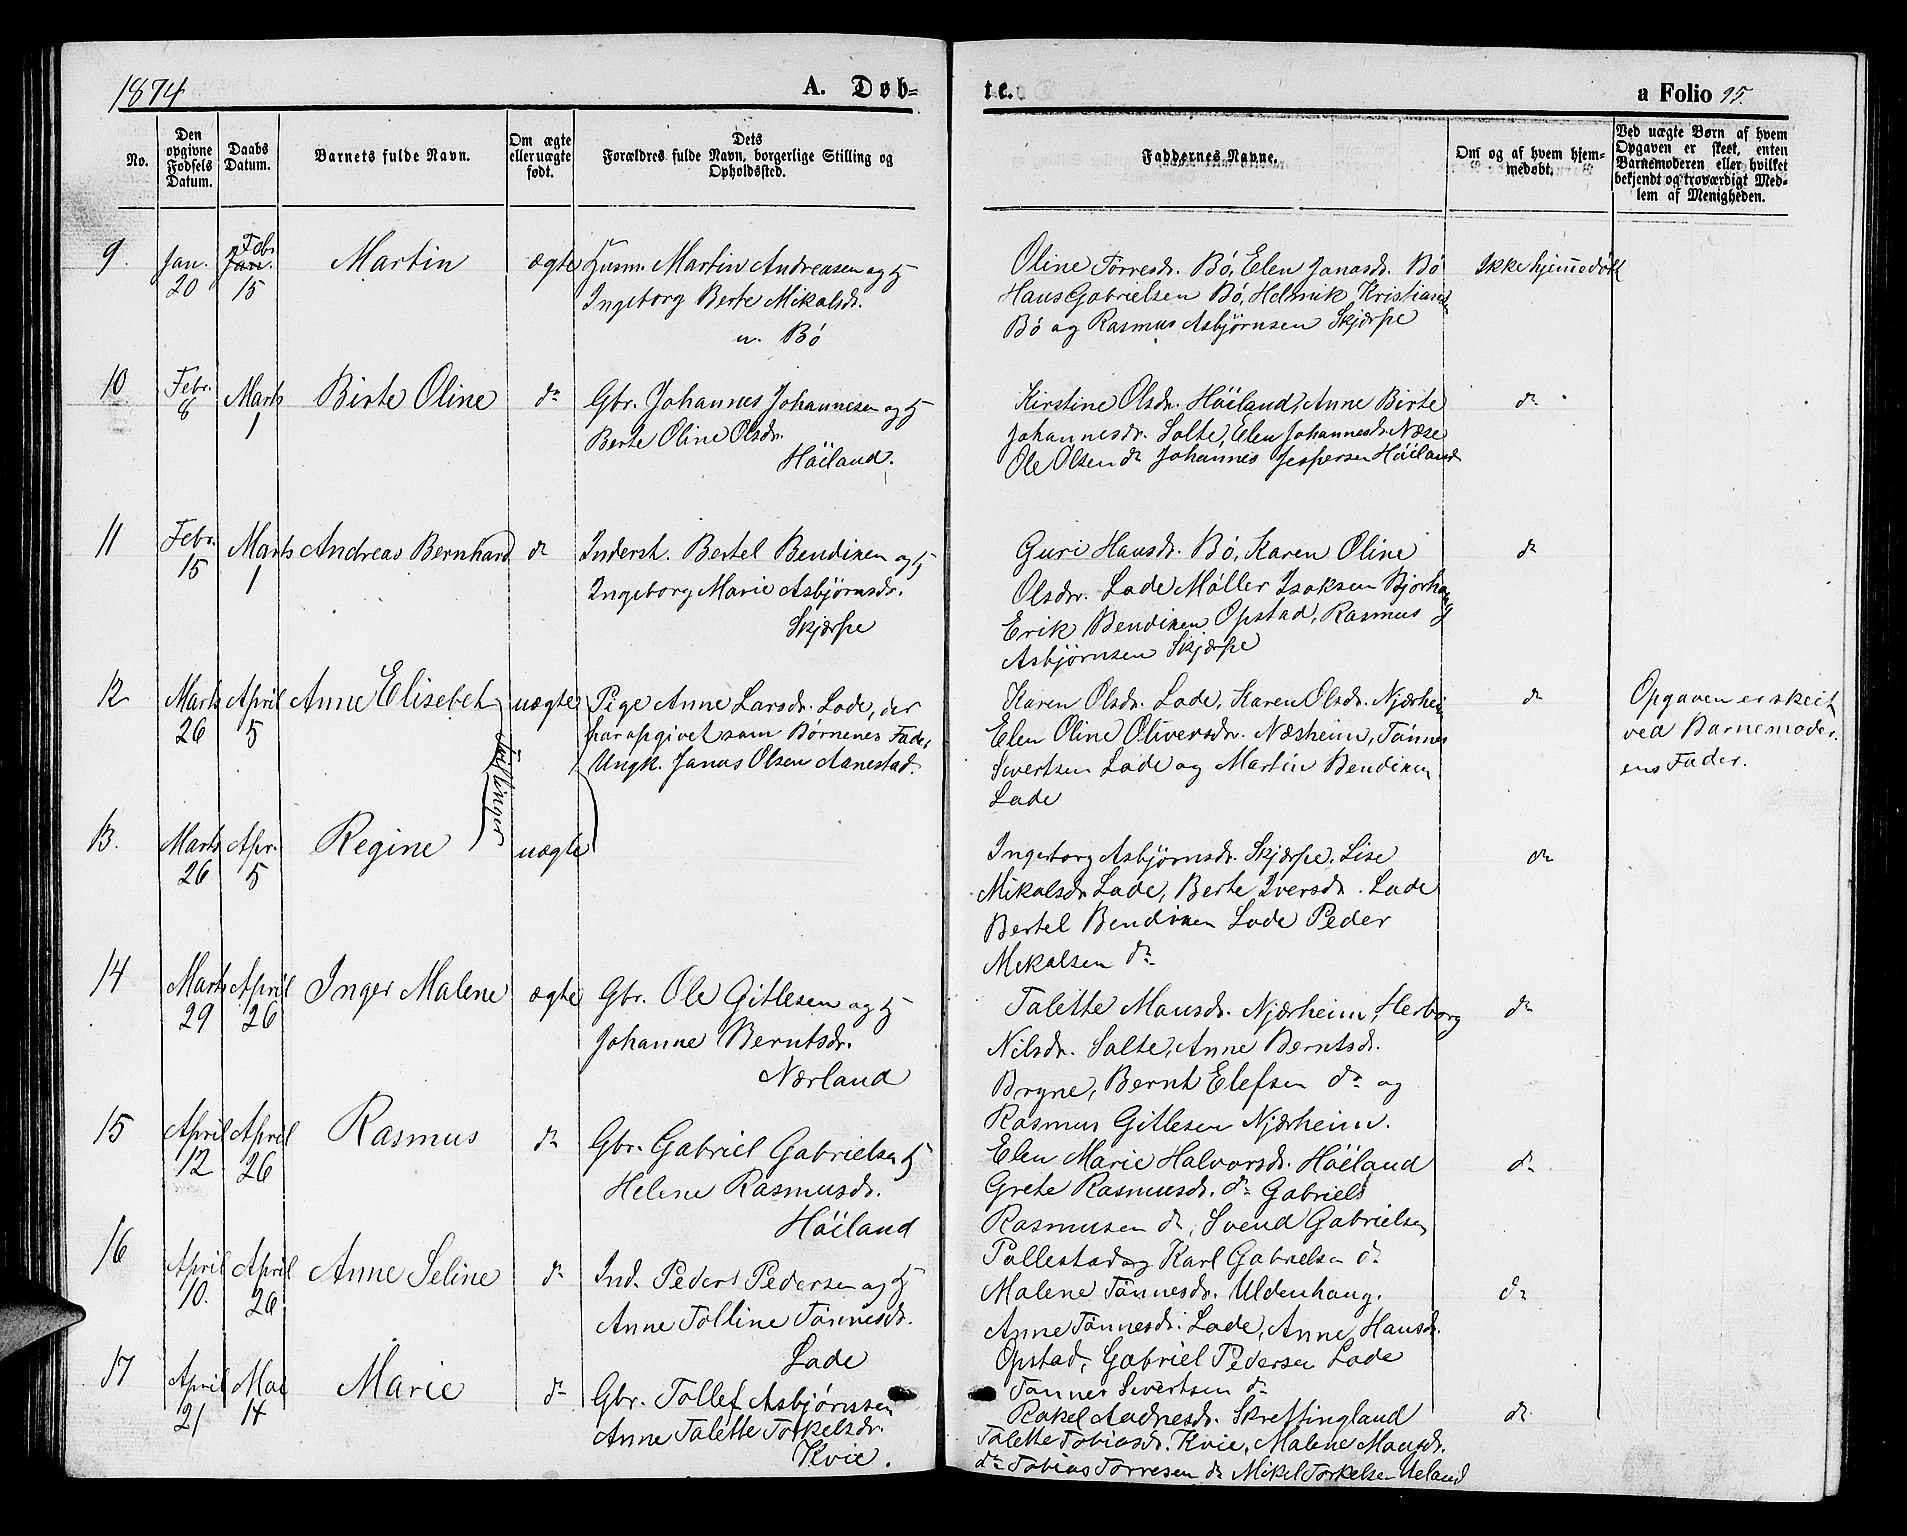 1874
A. Døb-
te.
a Folio 95.
No.
Den opgivne Fødsels Datum.
Daabs Datum.
Barnets fulde Navn.
Om ægte eller uægte født.
Dets Forældres fulde Navn, borgerlige Stilling og Opholdssted.
Faddernes Navne.
Om og af hvem hjemmedøbt.
Ved uægte Børn af hvem Opgaven er skeet, enten Barnemoderen eller hvilket bekjendt og troværdigt Medlem af Menigheden.
9 Jan. 20 Febr. 15 Martin ægte Husm. Martin Andreasen og H
Ingeborg Berte Mikalsdr.
Bö
Oline Torresdr. Bö, Elen Jonasdr. Bö
Hans Gabrielsen Bö, Helmik Kristians
Bö og Rasmus Asbjörnsen Skjærpe
Ikke hjemedöbt
10 Febr. 8 Marts 1 Birte Oline do Gbr. Johannes Johannesen og H
Berte Oline Olsdr.
Höiland.
Kirstine Olsdr. Höiland, Anne Birte
Johannesdr. Salte, Elen Johannesdr. Næse
Ole Olsen do Johannes Jespersen Höiland
do
11 Febr. 15 Marts 1 Andreas Bernhard do Inderst. Bertel Bendixen og H
Ingeborg Marie Asbjörnsdr.
Skjærpe
Guri Hansdr. Bö, Karen Oline
Olsdr. Lade Möller Isaksen Bjorhaug
Erik Bendixen Opstad, Rasmus
Asbjörnsen Skjærpe
do
12 Marts 26 April 5 Anne Elisebet uægte Pige Anne Larsdr. Lode, der
har opgivet som Börnenes Fader
Ungk. Jonas Olsen Aanestad.
Tvillinger
Karen Olsdr. Lade, Karen Olsdr. Njærheim
Elen Oline Oliversdr. Næsheim, Tönnes
Sivertsen Lade og Martin Bendixen
Lade
do
Opgaven er skeet
ved Barnemoder
ens Fader.
13. Marts 26 Apr. 5 Regine uægte
Ingeborg Asbjörnsdr. Skjærpe, Lise
Mikalsdr Lade, Berte Iversdr. Lade
Bertel Bendixen Lode Peder
Mikalsen do
do
14 Marts 29 April 26 Inger Malene ægte Gbr. Ole Gitlesen og H
Johanne Berntsdr.
Nærland
Talette Mausdr. Njærheim, Herborg
Nilsdr. Salte, Anne Berntsdr.
Bryne, Bernt Elefsen do og
Rasmus Gitlesen Njærheim.
do
15 April 12 April 26 Rasmus do Gbr. Gabriel Gabrielsen H
Helene Rasmusdr.
Höiland
Elen Marie Halvorsdr. Höiland
Grete Rasmusdr. do Gabriel
Rasmusen do, Svend Gabrielsen
Pollestad og Karl Gabrielsen do
do
16 April 10. April 26. Anne Seline do Ind. Peder Pedersen og H
Anne Tolline Tönnesdr.
Lade
Malene Tönnesdr. Uldenhaug.
Anne Tönnesdr. Lade, Anne Hansdr.
Opstad, Gabriel Pedersen Lade
Tönnes Sivertsen do
do
17 April 21 Mai 14 Marie do Gbr. Tollef Asbjörnssen
Anne Talette Torkelsdr.
Kvie.
Rakel Aadnesdr. Skrettingland
Talette Tobiasdr. Kvie, Malene Mausdr.
do Tobias Torresen do Mikel Torkelsen Ueland
do